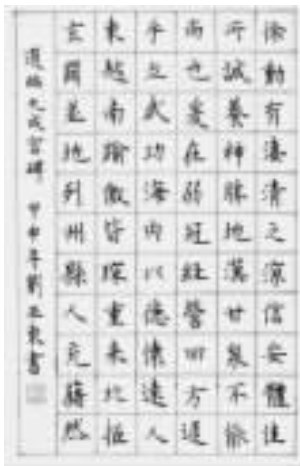 徐動有淒清之涼信安體佳
所誠養神勝地漢甘泉不能
尚也爰在弱冠經營四方逮
乎立武功海内以德懷遠人
東越南踰徼皆琛重来北拒
玄闕並地列州縣人充籍然
選臨九成宮碑 甲申年劉正東書